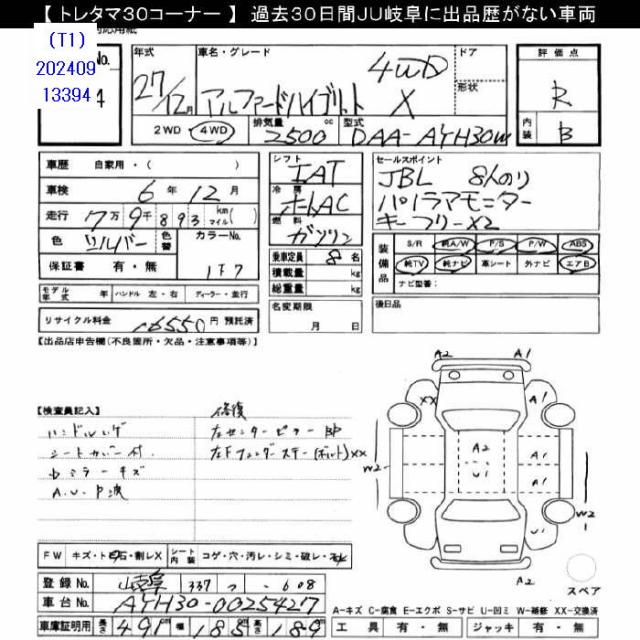 【 トレタマ30コーナー 】 過去30日間JU岐阜に出品歴がない車両
(T1)
202409
13394
No.
4
年式
27/12月
車名・グレード
アルファードハイブリット X
4WD
ドア
形状
評価点
R
内装
B
2WD
4WD
排気量
2500
cc
型式
DAA-AYH30W
車歴
自家用・(
)
車検
6 年 12 月
走行
7万9千893
km
マイル
(
)
色
シルバー
色替
カラーNo.
1F7
保証書
有・無
モデル年式
年
ハンドル
左・右
ディーラー・並行
リサイクル料金
16550 円 預託済
シフト
IAT
冷房
オートAC
燃料
ガソリン
乗車定員
8 名
積載量
kg
総重量
kg
名変期限
月 日
セールスポイント
JBL 8人のり
パノラマモニター
キーフリーX2
装備品
S/R
純A/W
P/S
P/W
ABS
純TV
純ナビ
革シート
外ナビ
エアB
ナビ型番:
後日品
【出品店申告欄(不良箇所・欠品・注意事項等)】
【検査員記入】
ハンドルスレ
シートカバー付
Dミラーキズ
修復
左センターピラー BP
左Fフェンダーステー(ボルト)XX
A2
A1
XX
A1
A2
W2
U1
A1
A1
W2
U1
FW
キズ・ト石・割レX
シート内装
コゲ・穴・汚レ・シミ・破レ・
登録No.
岐阜 337 つ ・608
車台No.
AYH30-0025427
車庫証明用
長さ
491
幅
185
高さ
189
スペア
A-キズ C-腐食 E-エクボ S-サビ U-凹ミ W-補修 XX-交換済
工具
有・無
ジャッキ
有・無